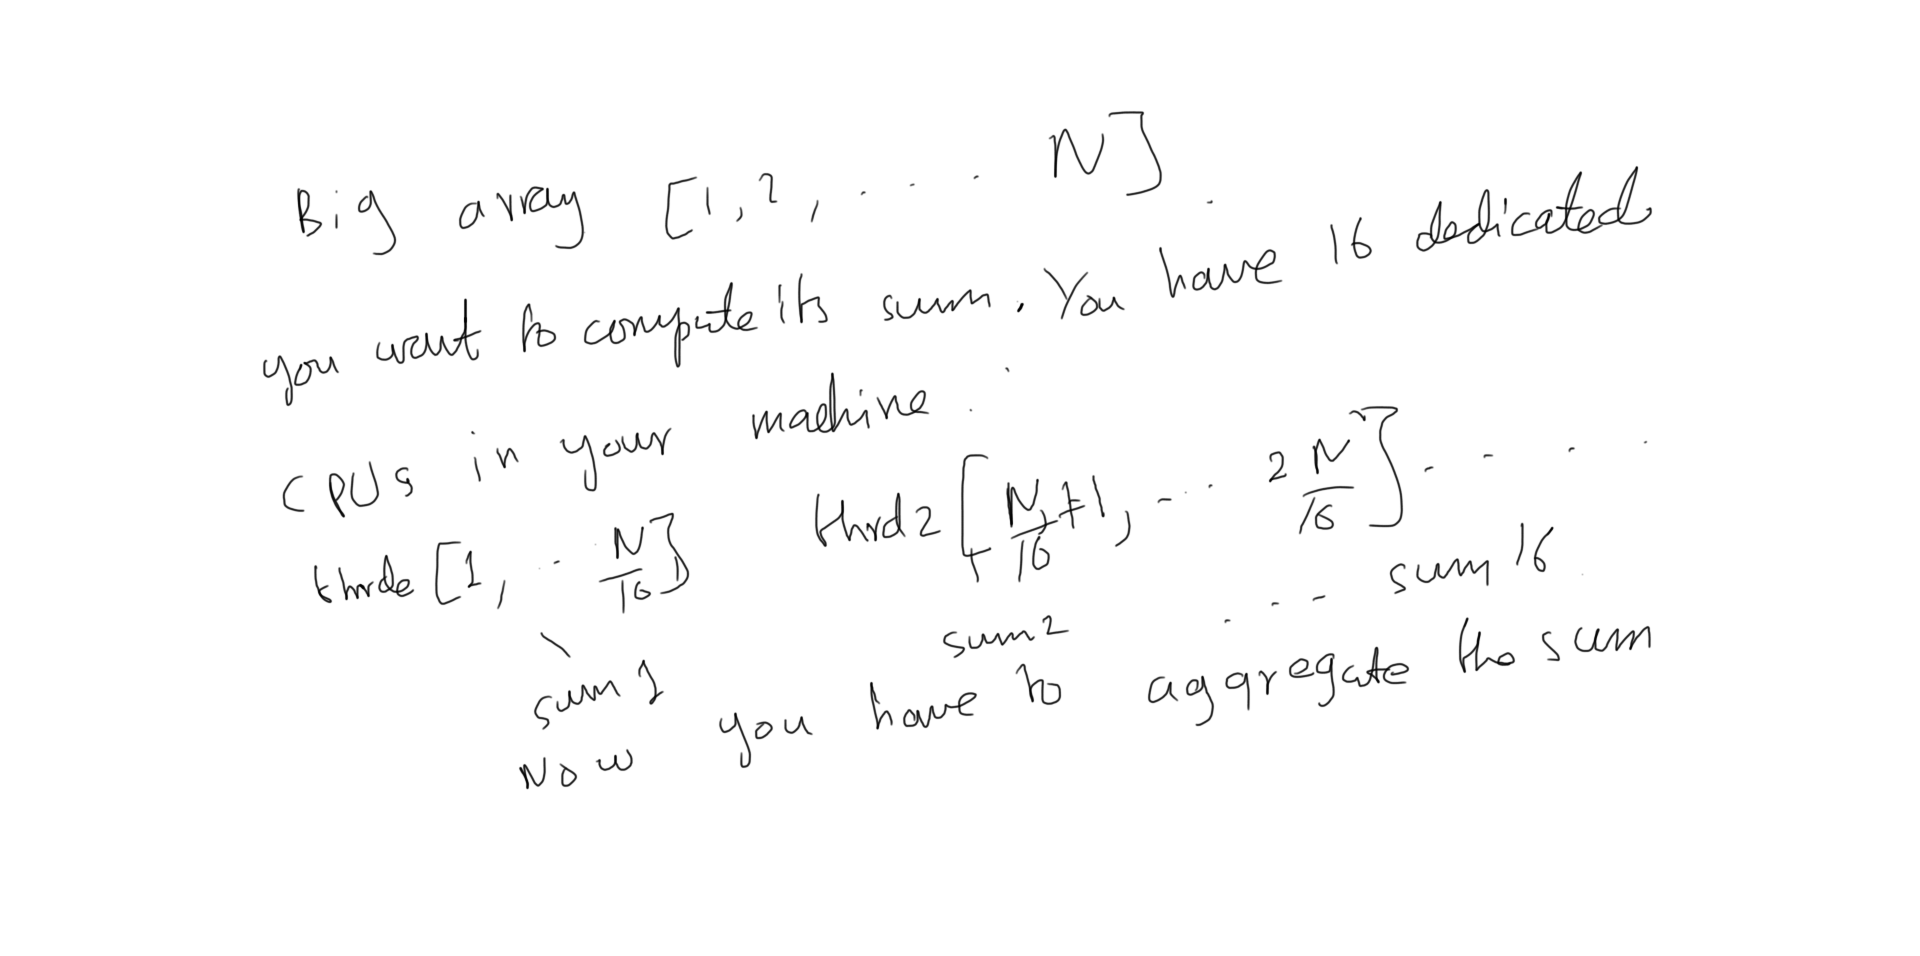 Big array [1, 2, . . . . N]
you want to compute its sum. You have 16 dedicated
CPUs in your machine.
thrde [1, .. N/16] thrd 2 [N/16+1, ... 2 N/16] . . . .
sum 1 sum 2 . . . sum 16
Now you have to aggregate the sum